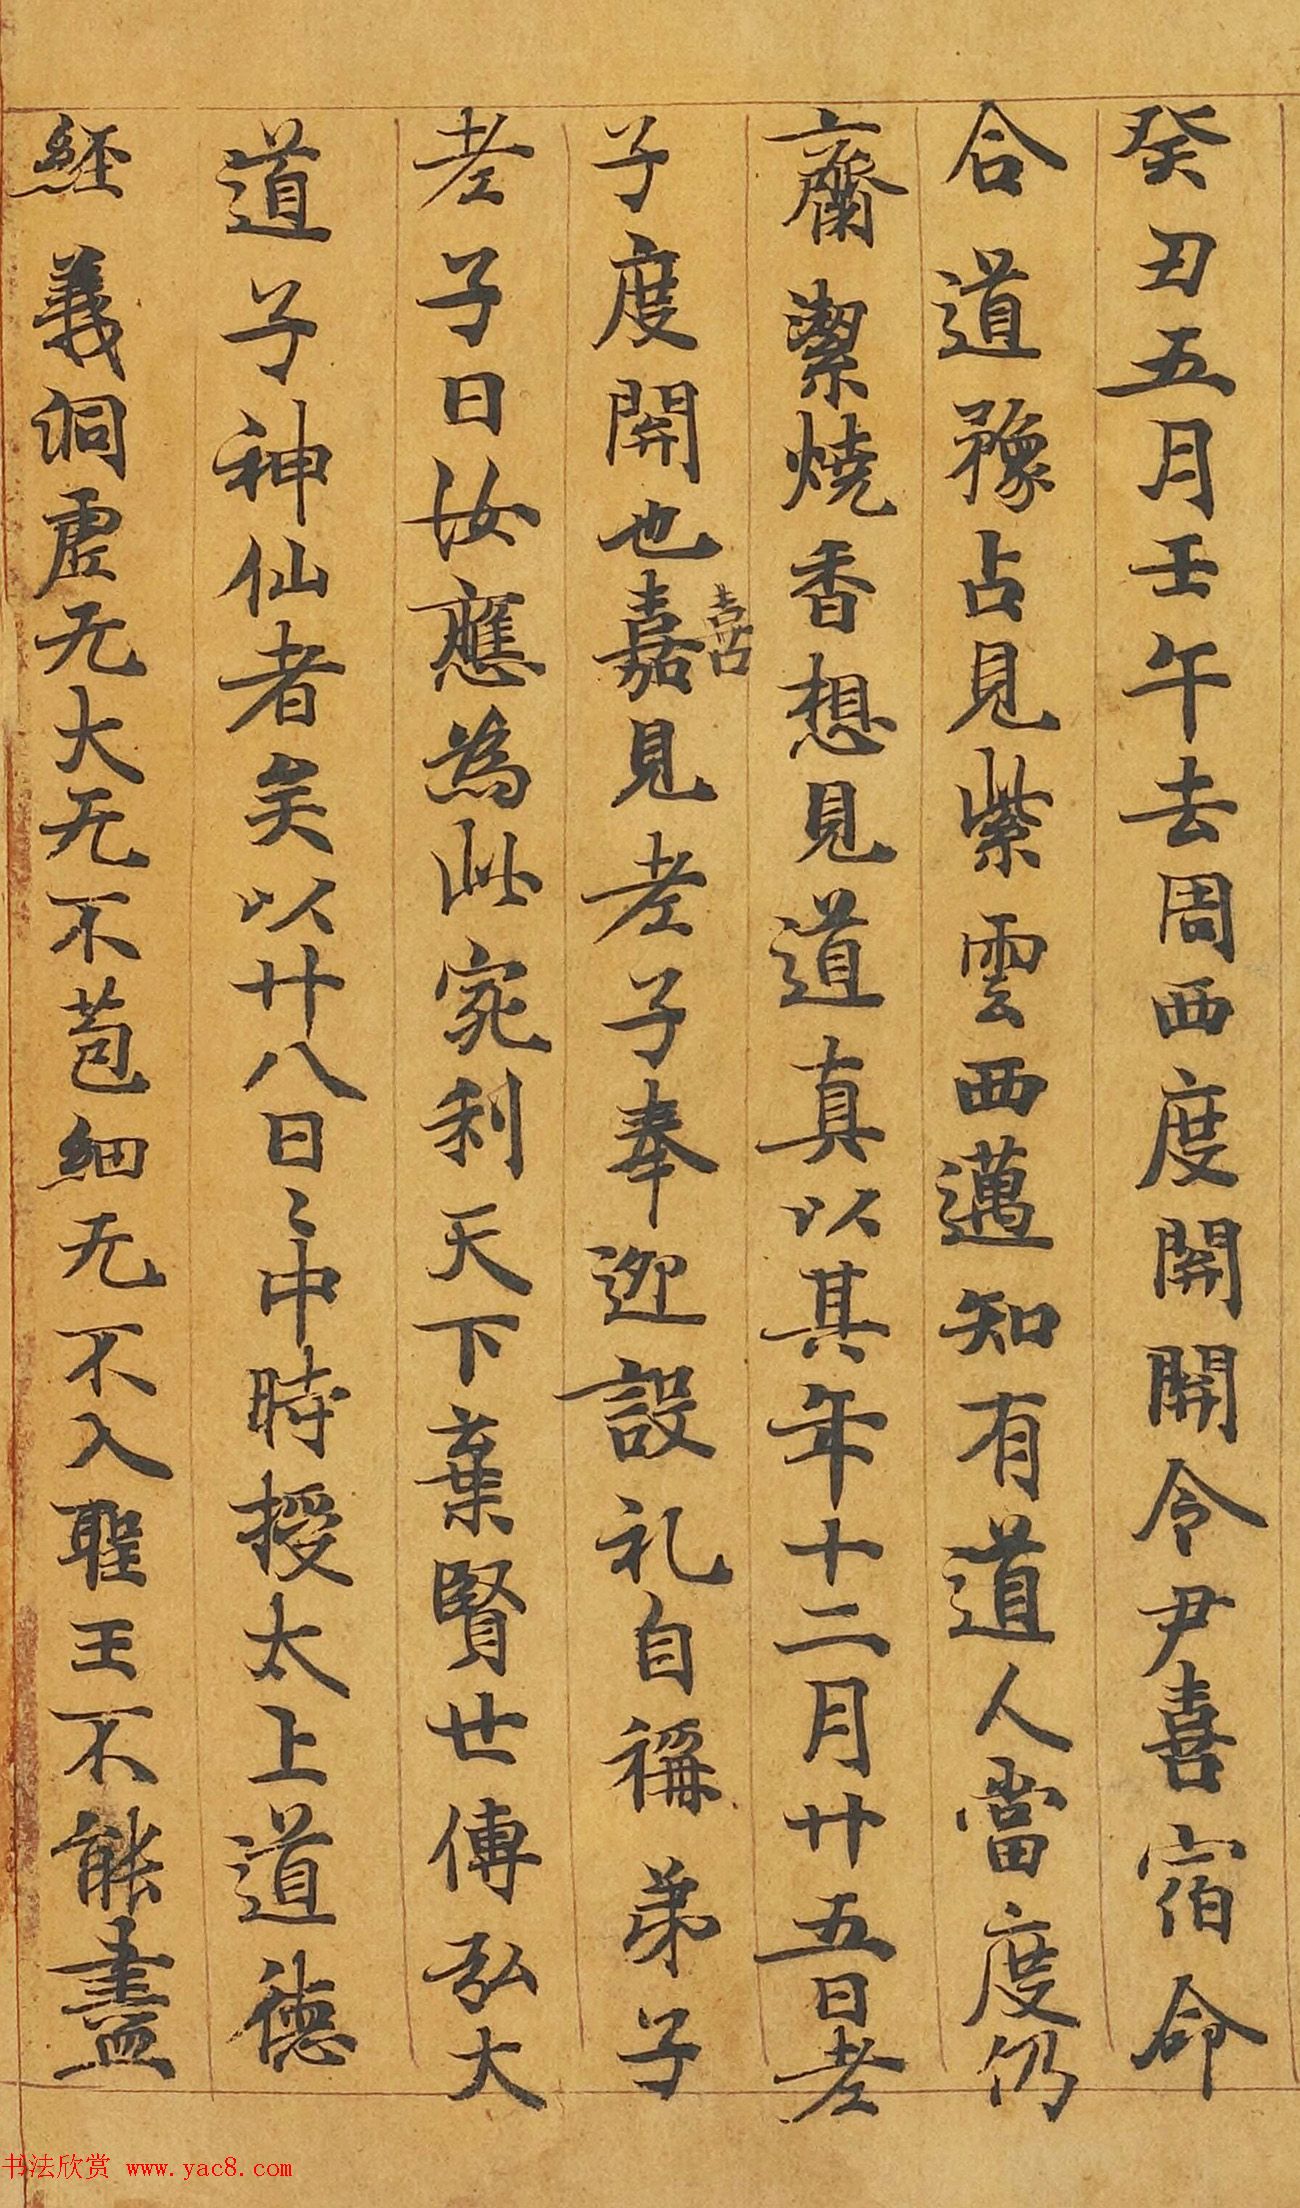 癸丑五月壬午去周西度開開令尹喜宿命
合道豫占見紫雲西邁知有道人當度仍
齋潔燒香想見道真以其年十二月廿五日老
子度開也嘉見老子奉迎設礼自稱弟子
喜
老子曰汝應為此宛利天下棄賢世傳弘大
道子神仙者矣以廿八日〻中時授太上道德
經義洞虛无大无不苞細无不入聖王不能盡
书法欣赏 www.yac8.com